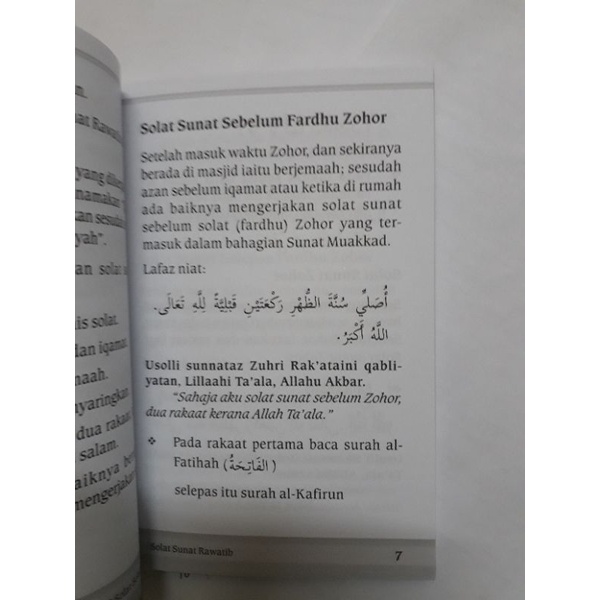 n.
at Rawatib
yang
namakan
kan sesudah
yah".
an solat
is solat.
dan iqamat
maah.
nyaringkan
dua rakaat
salam.
aiknya
mengerjakan
Solat Sunat Sebelum Fardhu Zohor
Setelah masuk waktu Zohor, dan sekiranya
berada di masjid iaitu berjemaah; sesudah
azan sebelum iqamat atau ketika di rumah
ada baiknya mengerjakan solat sunat
sebelum solat (fardhu) Zohor yang ter-
masuk dalam bahagian Sunat Muakkad.
Lafaz niat:
أُصَلِّي سُنَّةَ الظُّهْرِ رَكْعَتَيْنِ قَبْلِيَّةً لِلَّهِ تَعَالَى.
اللَّهُ أَكْبَرُ.
Usolli sunnataz Zuhri Rak'ataini qabli-
yatan, Lillaahi Ta'ala, Allahu Akbar.
"Sahaja aku solat sunat sebelum Zohor,
dua rakaat kerana Allah Ta'ala."
❖ Pada rakaat pertama baca surah al-
Fatihah (الْفَاتِحَةُ)
selepas itu surah al-Kafirun
Solat Sunat Rawatib 7